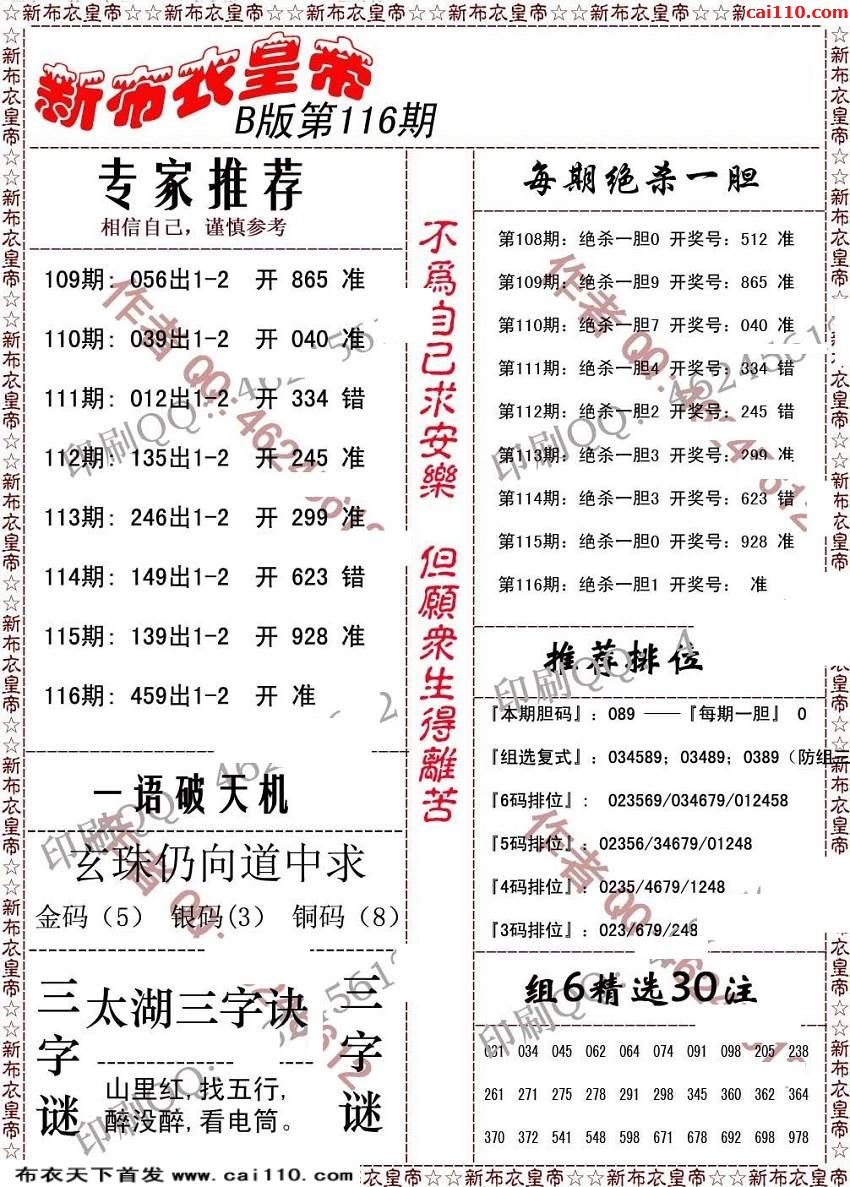 ☆☆新布衣皇帝☆☆新布衣皇帝☆☆新布衣皇帝☆☆新布衣皇帝☆☆新布衣皇帝☆☆新
cai110.com
新布衣皇帝
B版第116期
专家推荐
相信自己，谨慎参考
109期: 056出1-2 开 865 准
110期: 039出1-2 开 040 准
111期: 012出1-2 开 334 错
112期: 135出1-2 开 245 准
113期: 246出1-2 开 299 准
114期: 149出1-2 开 623 错
115期: 139出1-2 开 928 准
116期: 459出1-2 开 准
一语破天机
玄珠仍向道中求
金码（5） 银码(3) 铜码（8）
三字谜
太湖三字诀
山里红,找五行,
醉没醉,看电筒。
三字谜
不爲自己求安樂
但願衆生得離苦
每期绝杀一胆
第108期: 绝杀一胆0 开奖号: 512 准
第109期: 绝杀一胆9 开奖号: 865 准
第110期: 绝杀一胆7 开奖号: 040 准
第111期: 绝杀一胆4 开奖号: 334 错
第112期: 绝杀一胆2 开奖号: 245 错
第113期: 绝杀一胆3 开奖号: 299 准
第114期: 绝杀一胆3 开奖号: 623 错
第115期: 绝杀一胆0 开奖号: 928 准
第116期: 绝杀一胆1 开奖号: 准
推荐排位
『本期胆码』: 089 ——『每期一胆』 0
『组选复式』: 034589; 03489; 0389（防组三
『6码排位』: 023569/034679/012458
『5码排位』: 02356/34679/01248
『4码排位』: 0235/4679/1248
『3码排位』: 023/679/248
组6精选30注
031 034 045 062 064 074 091 098 205 238
261 271 275 278 291 298 345 360 362 364
370 372 541 548 598 671 678 692 698 978
作者QQ:46245612
印刷QQ:46245612
布衣天下首发 www.cai110.com
衣皇帝☆☆新布衣皇帝☆☆新布衣皇帝☆☆新布衣皇帝☆